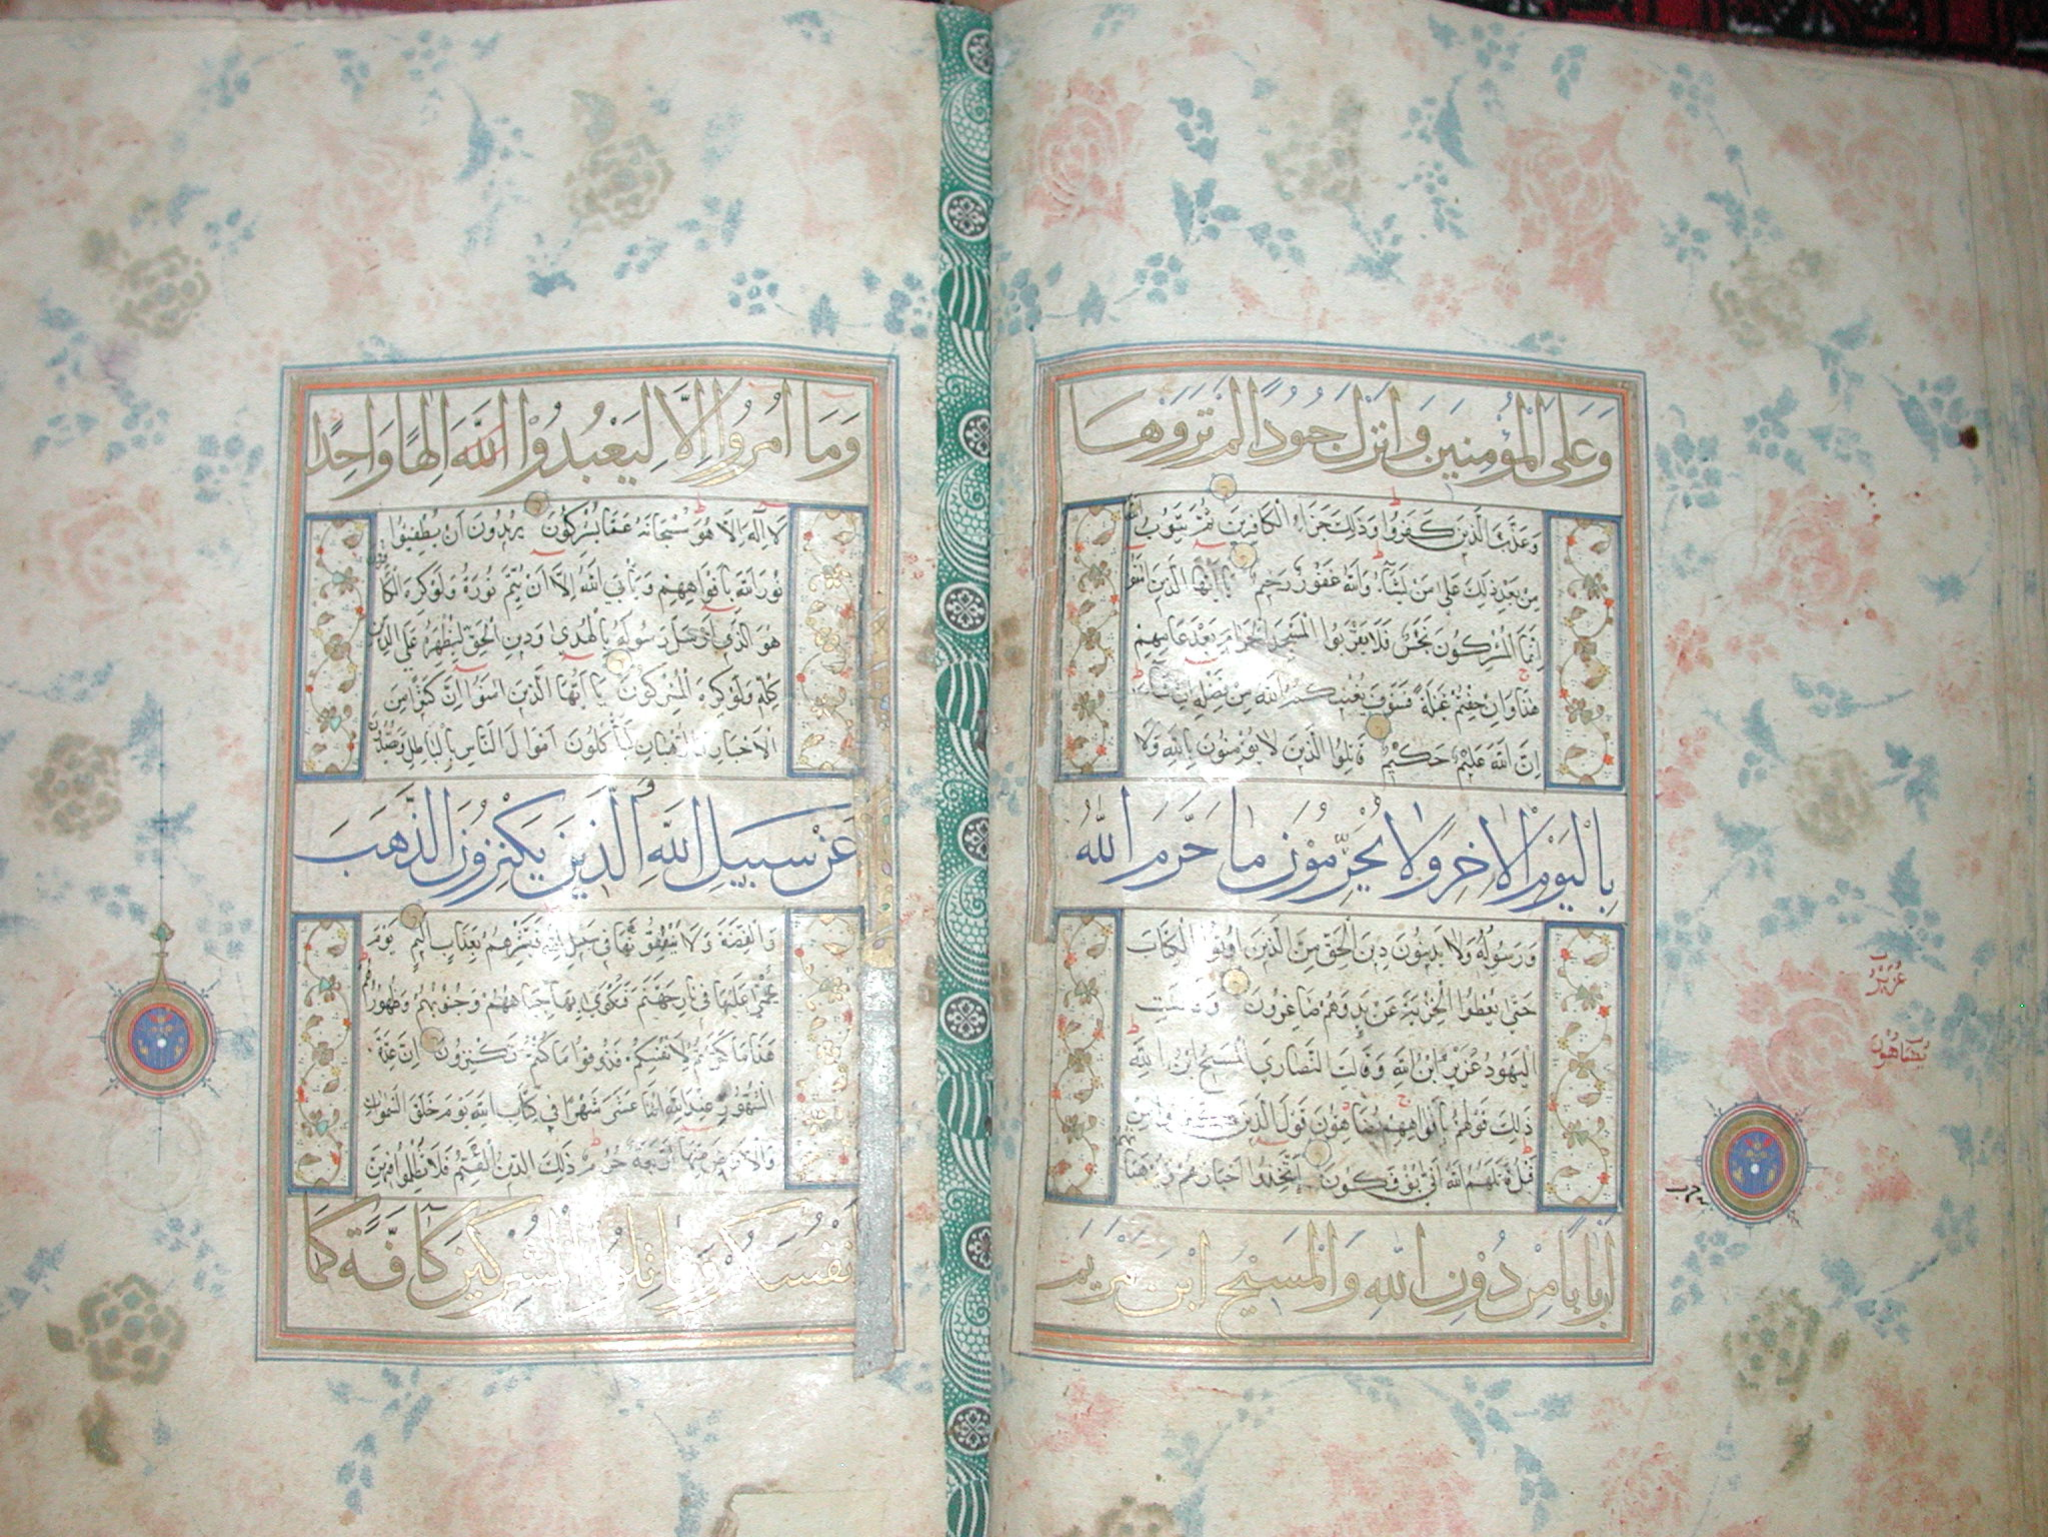 وَعَلَى الْمُؤْمِنِينَ وَأَنْزَلَ جُنُودًا لَمْ تَرَوْهَا
وَعَذَّبَ الَّذِينَ كَفَرُوا وَذَلِكَ جَزَاءُ الْكَافِرِينَ ثُمَّ يَتُوبُ اللَّهُ
مِنْ بَعْدِ ذَلِكَ عَلَى مَنْ يَشَاءُ وَاللَّهُ غَفُورٌ رَحِيمٌ يَا أَيُّهَا الَّذِينَ آمَنُوا
إِنَّمَا الْمُشْرِكُونَ نَجَسٌ فَلَا يَقْرَبُوا الْمَسْجِدَ الْحَرَامَ بَعْدَ عَامِهِمْ
هَذَا وَإِنْ خِفْتُمْ عَيْلَةً فَسَوْفَ يُغْنِيكُمُ اللَّهُ مِنْ فَضْلِهِ إِنْ شَاءَ
إِنَّ اللَّهَ عَلِيمٌ حَكِيمٌ قَاتِلُوا الَّذِينَ لَا يُؤْمِنُونَ بِاللَّهِ وَلَا
بِالْيَوْمِ الْآخِرِ وَلَا يُحَرِّمُونَ مَا حَرَّمَ اللَّهُ
وَرَسُولُهُ وَلَا يَدِينُونَ دِينَ الْحَقِّ مِنَ الَّذِينَ أُوتُوا الْكِتَابَ
حَتَّى يُعْطُوا الْجِزْيَةَ عَنْ يَدٍ وَهُمْ صَاغِرُونَ وَقَالَتِ
الْيَهُودُ عُزَيْرٌ ابْنُ اللَّهِ وَقَالَتِ النَّصَارَى الْمَسِيحُ ابْنُ اللَّهِ
ذَلِكَ قَوْلُهُمْ بِأَفْوَاهِهِمْ يُضَاهِؤُنَ قَوْلَ الَّذِينَ كَفَرُوا مِنْ
قَبْلُ قَاتَلَهُمُ اللَّهُ أَنَّى يُؤْفَكُونَ اتَّخَذُوا أَحْبَارَهُمْ وَرُهْبَانَهُمْ
أَرْبَابًا مِنْ دُونِ اللَّهِ وَالْمَسِيحَ ابْنَ مَرْيَمَ
عُزَيْرُ
يُضَاهُونَ
وَمَا أُمِرُوا إِلَّا لِيَعْبُدُوا اللَّهَ إِلَهًا وَاحِدًا
لَا إِلَهَ إِلَّا هُوَ سُبْحَانَهُ عَمَّا يُشْرِكُونَ يُرِيدُونَ أَنْ يُطْفِئُوا
نُورَ اللَّهِ بِأَفْوَاهِهِمْ وَيَأْبَى اللَّهُ إِلَّا أَنْ يُتِمَّ نُورَهُ وَلَوْ كَرِهَ الْكَافِرُونَ
هُوَ الَّذِي أَرْسَلَ رَسُولَهُ بِالْهُدَى وَدِينِ الْحَقِّ لِيُظْهِرَهُ عَلَى الدِّينِ
كُلِّهِ وَلَوْ كَرِهَ الْمُشْرِكُونَ يَا أَيُّهَا الَّذِينَ آمَنُوا إِنَّ كَثِيرًا مِنَ
الْأَحْبَارِ وَالرُّهْبَانِ لَيَأْكُلُونَ أَمْوَالَ النَّاسِ بِالْبَاطِلِ وَيَصُدُّونَ
عَنْ سَبِيلِ اللَّهِ وَالَّذِينَ يَكْنِزُونَ الذَّهَبَ
وَالْفِضَّةَ وَلَا يُنْفِقُونَهَا فِي سَبِيلِ اللَّهِ فَبَشِّرْهُمْ بِعَذَابٍ أَلِيمٍ يَوْمَ
يُحْمَى عَلَيْهَا فِي نَارِ جَهَنَّمَ فَتُكْوَى بِهَا جِبَاهُهُمْ وَجُنُوبُهُمْ وَظُهُورُهُمْ
هَذَا مَا كَنَزْتُمْ لِأَنْفُسِكُمْ فَذُوقُوا مَا كُنْتُمْ تَكْنِزُونَ إِنَّ عِدَّةَ
الشُّهُورِ عِنْدَ اللَّهِ اثْنَا عَشَرَ شَهْرًا فِي كِتَابِ اللَّهِ يَوْمَ خَلَقَ السَّمَوَاتِ
وَالْأَرْضَ مِنْهَا أَرْبَعَةٌ حُرُمٌ ذَلِكَ الدِّينُ الْقَيِّمُ فَلَا تَظْلِمُوا فِيهِنَّ
أَنْفُسَكُمْ وَقَاتِلُوا الْمُشْرِكِينَ كَافَّةً كَمَا